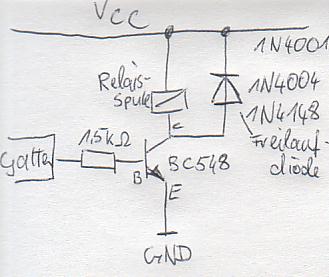 VCC
1N4001
Relais-
spule
1N4004
1N4148
1,5kΩ
C
Freilauf-
diode
Gatter
B
BC548
E
GND